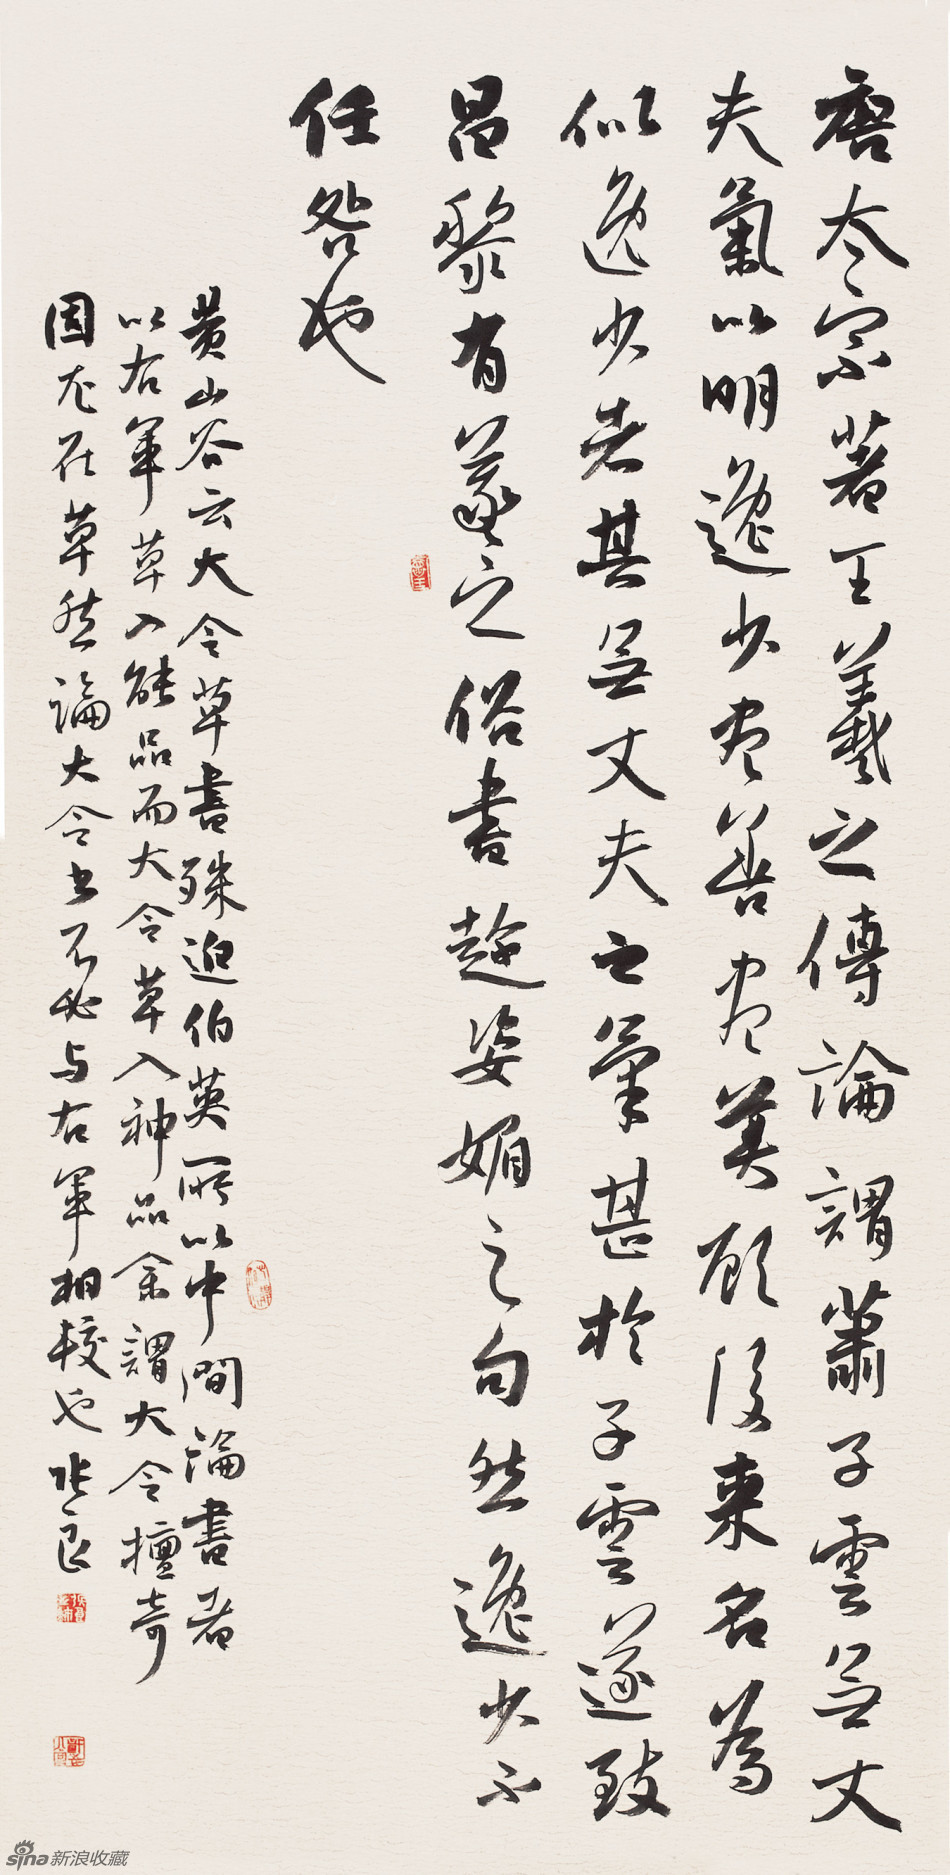 唐太宗著王羲之傳論謂蕭子雲無丈
夫氣以明逸少盡善盡美顧後來名為
似逸少者其無丈夫之氣甚於子雲遂致
昌黎有羲之俗書趁姿媚之句然逸少不
任咎也
黄山谷云大令草書殊迫伯英所以中間論書者
以右軍草入能品而大令草入神品余謂大令擅奇
固尤在草然論大令书不必与右軍相較也张良
sina新浪收藏